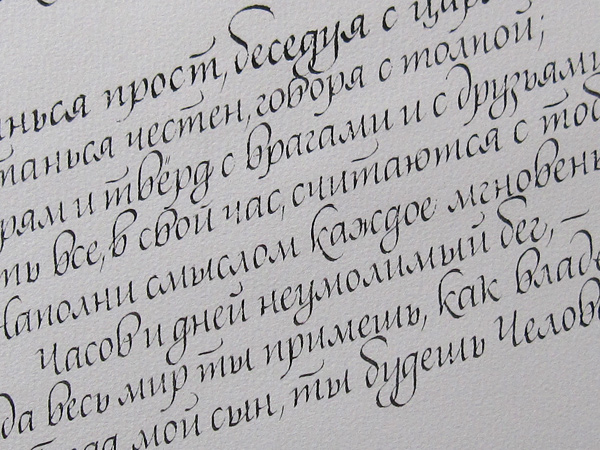 нься прост, беседуя с цар
танься честен, говоря с толпой;
рям и твёрд с врагами и с друзьями
ть все, в свой час, считаются с тоб
Наполни смыслом каждое мгновень
Часов и дней неумолимый бег, –
да весь мир ты примешь, как владе
мой сын, ты будешь Челов